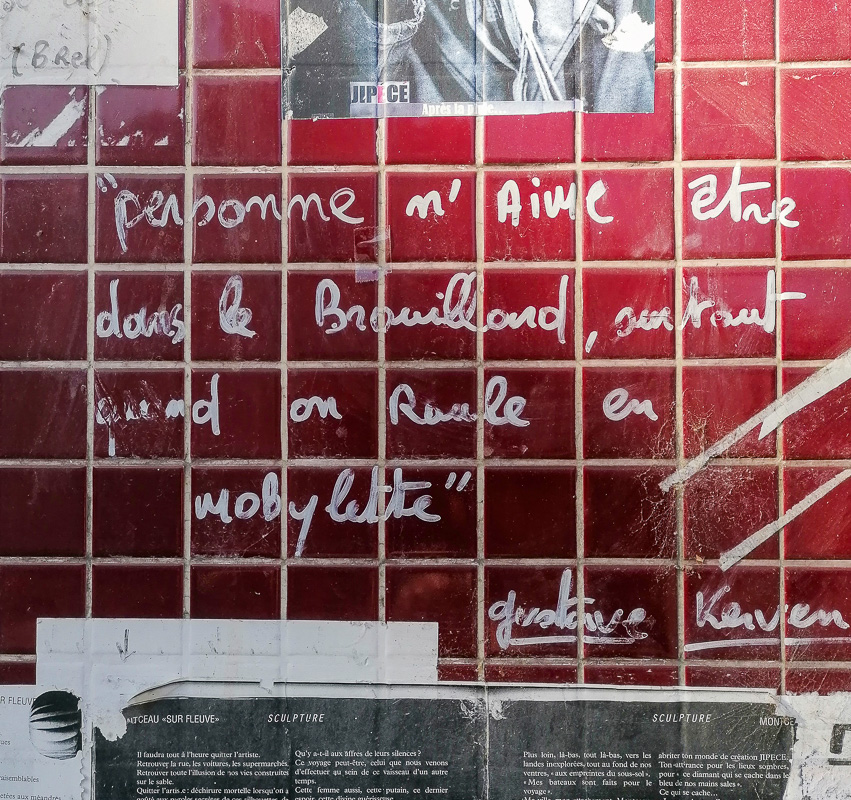 (BREL)
JIPÉCE
Après la
"personne n' Aime être
dans le Brouillard, surtout
quand on Roule en
mobylette"
gustave Kerven
R FLEUVE
CEAU «SUR FLEUVE»
SCULPTURE
SCULPTURE
MONTCE
Il faudra tout à l'heure quitter l'artiste.
Retrouver la rue, les voitures, les supermarchés.
Retrouver toute l'illusion de nos vies construites
sur le sable.
Quitter l'artiste : déchirure mortelle lorsqu'on a
Qu'y a-t-il aux affres de leurs silences ?
Ce voyage peut-être, celui que nous venons
d'effectuer au sein de ce vaisseau d'un autre
temps.
Cette femme aussi, cette putain, ce dernier
espoir, cette divine guérisseuse
Plus loin, là-bas, tout là-bas, vers les
landes inexplorées, tout au fond de nos
ventres, « aux empreintes du sous-sol ».
« Mes bateaux sont faits pour le
voyage ».
abriter ton monde de création JIPECE.
Ton attirance pour les lieux sombres,
pour « ce diamant qui se cache dans le
bleu de nos mains sales ».
Ce qui se cache...